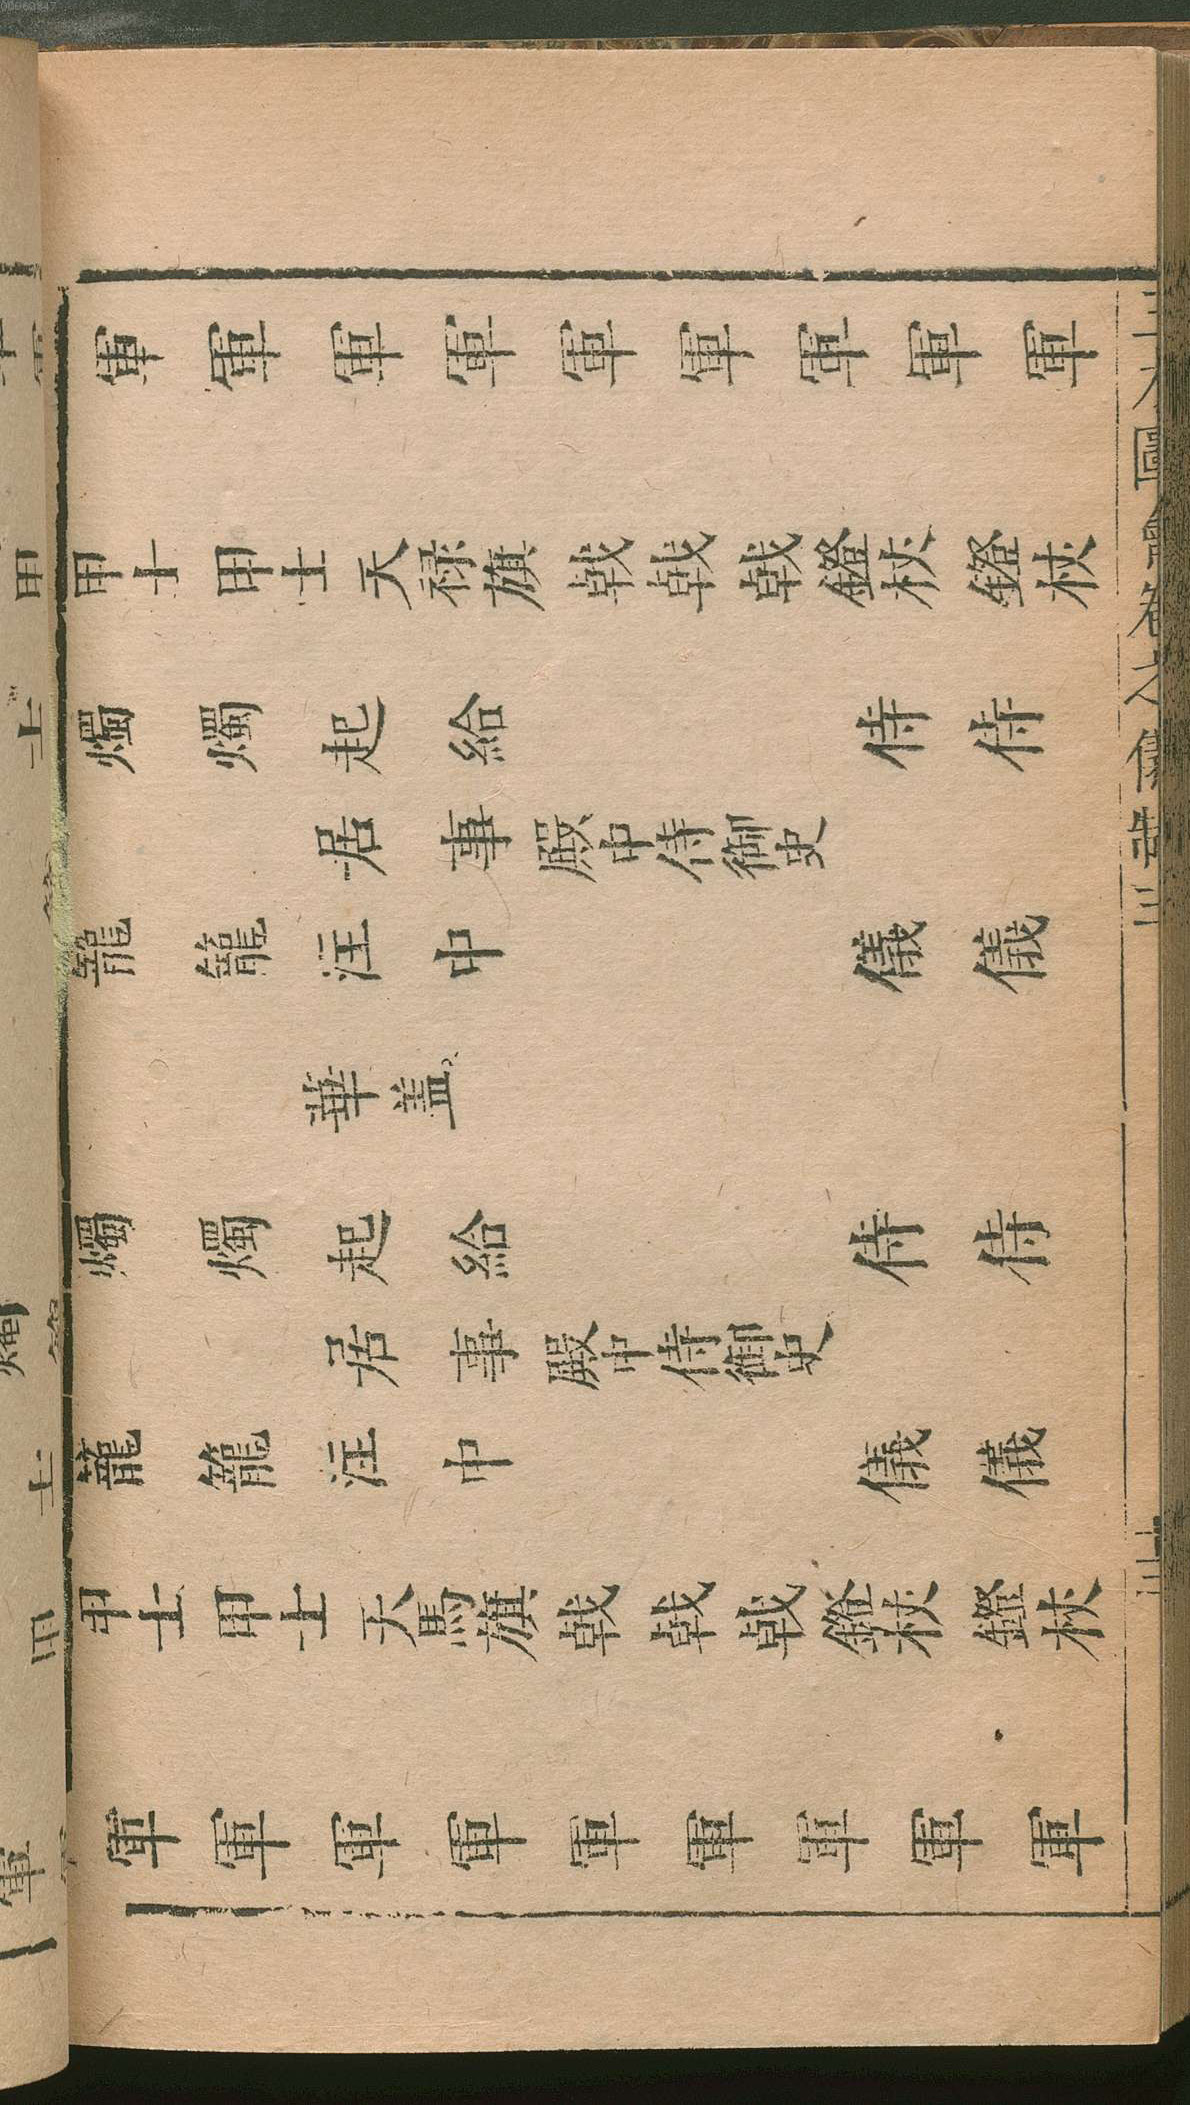 軍 軍 軍 軍 軍 軍 軍 軍 軍
甲士 甲士 天祿旗 戟 戟 戟 鐙杖 鐙杖
燭籠
燭籠
起居注
給事中
殿中侍御史
侍儀
侍儀
華盖
燭籠
燭籠
起居注
給事中
殿中侍御史
侍儀
侍儀
甲士 甲士 天馬旗 戟 戟 戟 鐙杖 鐙杖
軍 軍 軍 軍 軍 軍 軍 軍 軍